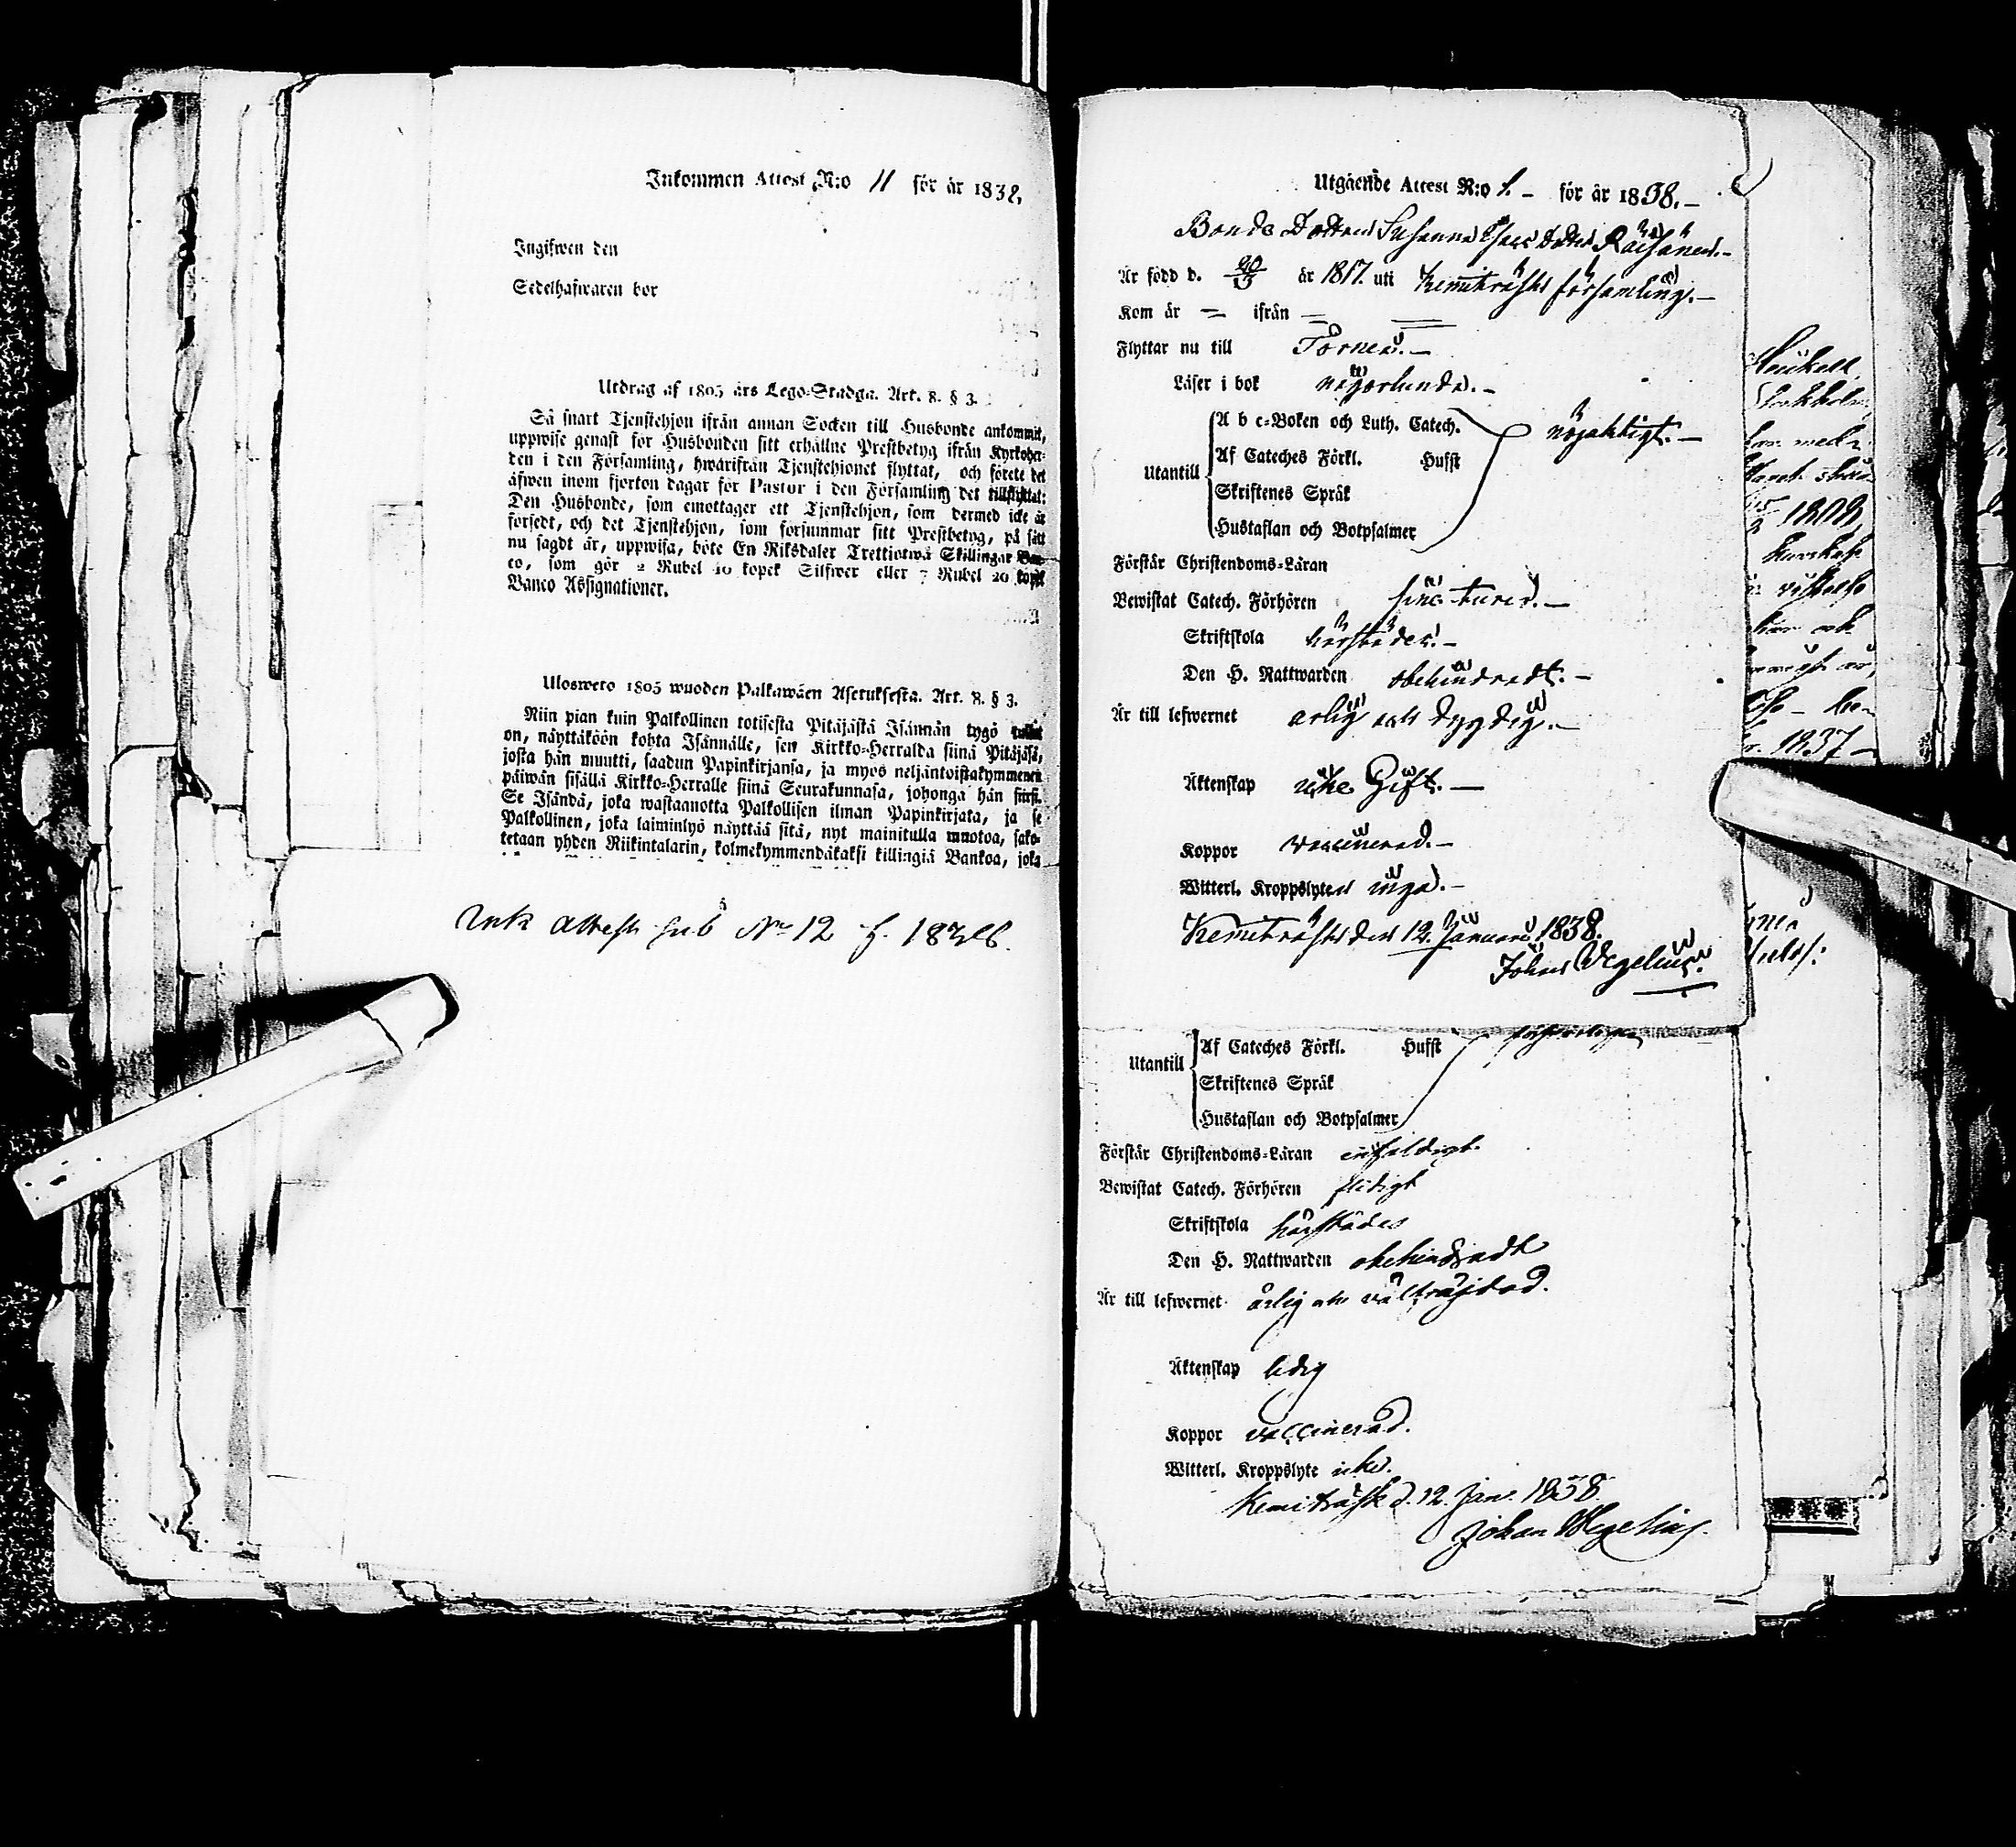 Inkommen Attest N:o 11 för år 1838.
Ingifwen den
Sedelhafwaren bor
Utdrag af 1805 års Lego-Stadga. Art. 8. § 3.
Så snart Tjenstehjon ifrån annan Socken till Husbonde ankommit,
uppwise genast för Husbonden sitt erhållne Prestbetyg ifrån Kyrkoher-
den i den Församling, hwarifrån Tjenstehjonet flyttat, och förete det
äfwen inom fjorton dagar för Pastor i den Församling det tillflyttat:
Den Husbonde, som emottager ett Tjenstehjon, som dermed icke är
försedt, och det Tjenstehjon, som försummar sitt Prestbetyg, på sätt
nu sagdt är, uppwisa, böte En Riksdaler Trettiotwå Skillingar Ban-
co, som gör 2 Rubel 40 kopek Silfwer eller 7 Rubel 20 kopek
Banco Assignationer.
Ulosweto 1805 wuoden Palkawäen Asetuksesta. Art. 8. § 3.
Niin pian kuin Palkollinen toisesta Pitäjästä Isännän tygö tullut
on, näyttäköön kohta Isännälle, sen Kirkko-Herralda siinä Pitäjäsä,
josta hän muutti, saadun Papinkirjansa, ja myös neljäntoistakymmenen
päiwän sisällä Kirkko-Herralle siinä Seurakunnasa, johonga hän siirsi.
Se Isändä, joka wastaanotta Palkollisen ilman Papinkirjata, ja se
Palkollinen, joka laiminlyö näyttää sitä, nyt mainitulla muotoa, sako-
tetaan yhden Riikintalarin, kolmekymmendäkaksi killingiä Bankoa, joka
Ink attest sub No 12 f. 1838.
Utgående Attest N:o 1. – för år 1838. –
Bonde Dottren Susanna Dotter Räisänen. –
Är född d. 20/ år 1817. uti Kemiträsks församling. –
Kom år = ifrån =
Flyttar nu till Torneå. –
Läser i bok någorlunda. –
A b c-Boken och Luth. Catech. nöjaktigt. –
Af Cateches Förkl. Hufst
Utantill
Skriftenes Språk
Hustaflan och Botpsalmer
Förstår Christendoms-Läran
Bewistat Catech. Förhören sine turer. –
Skriftskola härstädes. –
Den H. Nattwarden obehindradt. –
Är till lefwernet ärlig och dygdig. –
Äktenskap icke Gift. –
Koppor vaccinerad. –
Witterl. Kroppslyten inga. –
Kemiträsk den 12. Januarii 1838.
Johan Wegelius.
Af Cateches Förkl. Hufst
Utantill
Skriftenes Språk
Hustaflan och Botpsalmer
Förstår Christendoms-Läran enfaldigt
Bewistat Catech. Förhören flitigt
Skriftskola härstädes
Den H. Nattwarden obehindradt
Är till lefwernet ärlig och välfräjdad.
Äktenskap ledig
Koppor vaccinerad.
Witterl. Kroppslyte icke.
Kemiträsk d. 12. Jan. 1838.
Johan Wegelius.
1808
1837